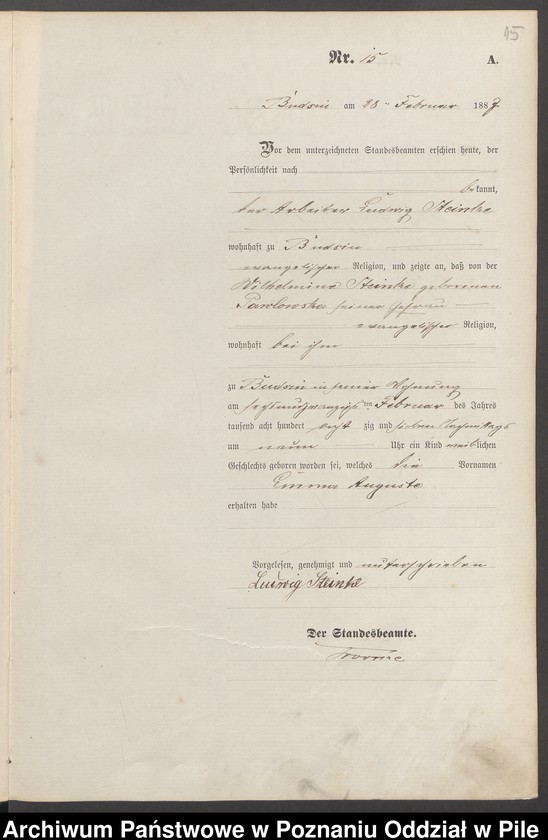 15
Nr. 15
A.
Budsin am 28. Februar 1887
Vor dem unterzeichneten Standesbeamten erschien heute, der
Persönlichkeit nach
bekannt,
der Arbeiter Ludwig Steinke
wohnhaft zu Budsin
evangelischer Religion, und zeigte an, daß von der
Wilhelmine Steinke geborenen
Pawlowska seiner Ehefrau
evangelischer Religion,
wohnhaft bei ihm
zu Budsin in seiner Wohnung
am sechsundzwanzigsten Februar des Jahres
tausend acht hundert acht zig und sieben Nachmittags
um neun Uhr ein Kind weiblichen
Geschlechts geboren worden sei, welches die Vornamen
Emma Auguste
erhalten habe
Vorgelesen, genehmigt und unterschrieben
Ludwig Steinke
Der Standesbeamte.
Archiwum Państwowe w Poznaniu Oddział w Pile